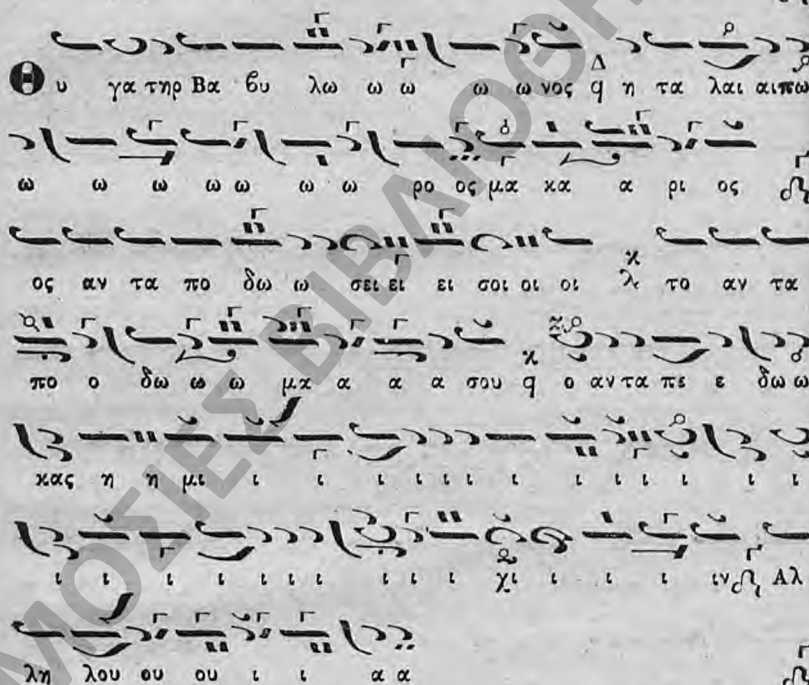 Θυ γα τηρ Βα βυ λω ω ω ω ω νος Δ q η τα λαι αι πω
ω ω ω ω ω ω ω ρο ος μα κα α ρι ος
ος αν τα πο δω ω σει ει ει σοι οι οι λ το αν τα
πο ο δω ω ω μα α α α σου q ο αν τα πε ε δω ω
κας η η μι ι ι ι ι ι ι ι ι ι ι ι ι ι
ι ι ι ι ι ι ι ι ι ι χι ι ι ι ιν Αλ
λη λου ου ου ι ι α α
ΜΟΣΙΕΣ ΒΙΒΛΙΟΘΗ